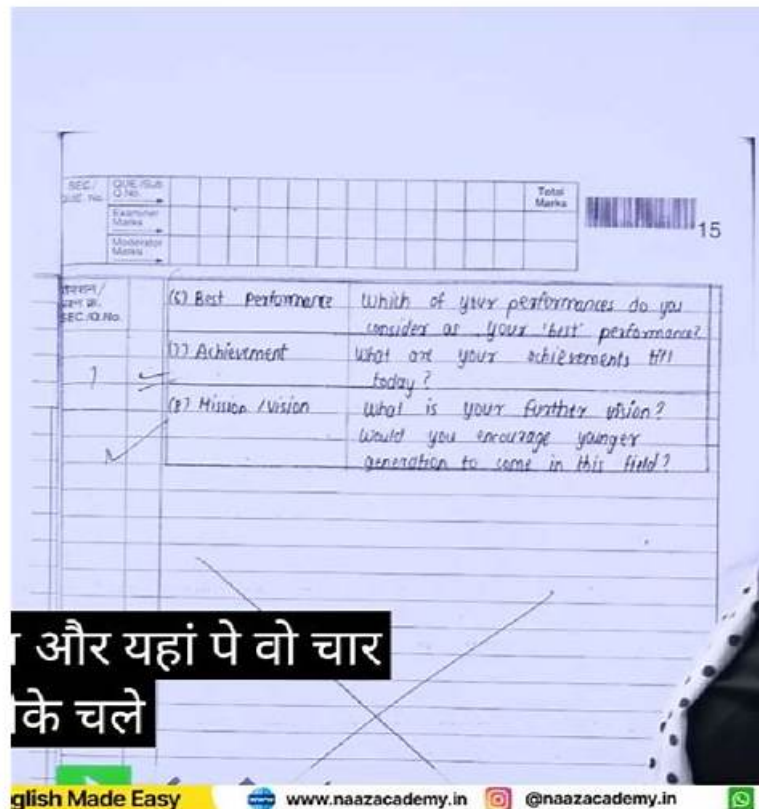 SEC./ QUE./Sub Q.No. Total Marks
QUE. No.
Examiner Marks
Moderator Marks
15
प्रश्न क्र.
SEC./Q.No.
(6) Best Performance Which of your performances do you
consider as your 'best' performance?
(7) Achievement What are your achievements till
today?
(8) Mission / Vision What is your further vision?
Would you encourage younger
generation to come in this field?
और यहां पे वो चार
के चले
glish Made Easy www.naazacademy.in @naazacademy.in